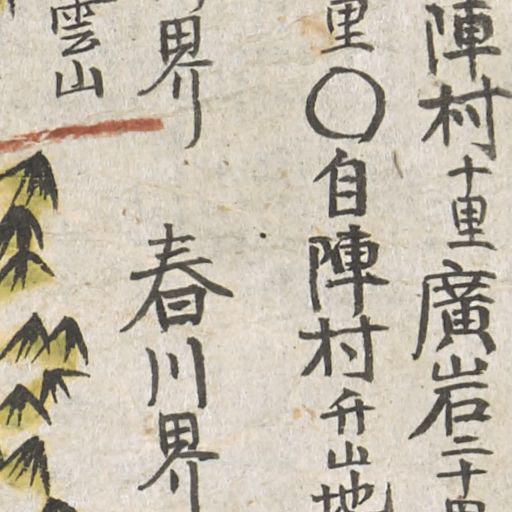 陣村十里廣岩二十
里〇自陣村弁山地
界 春川界
雲山